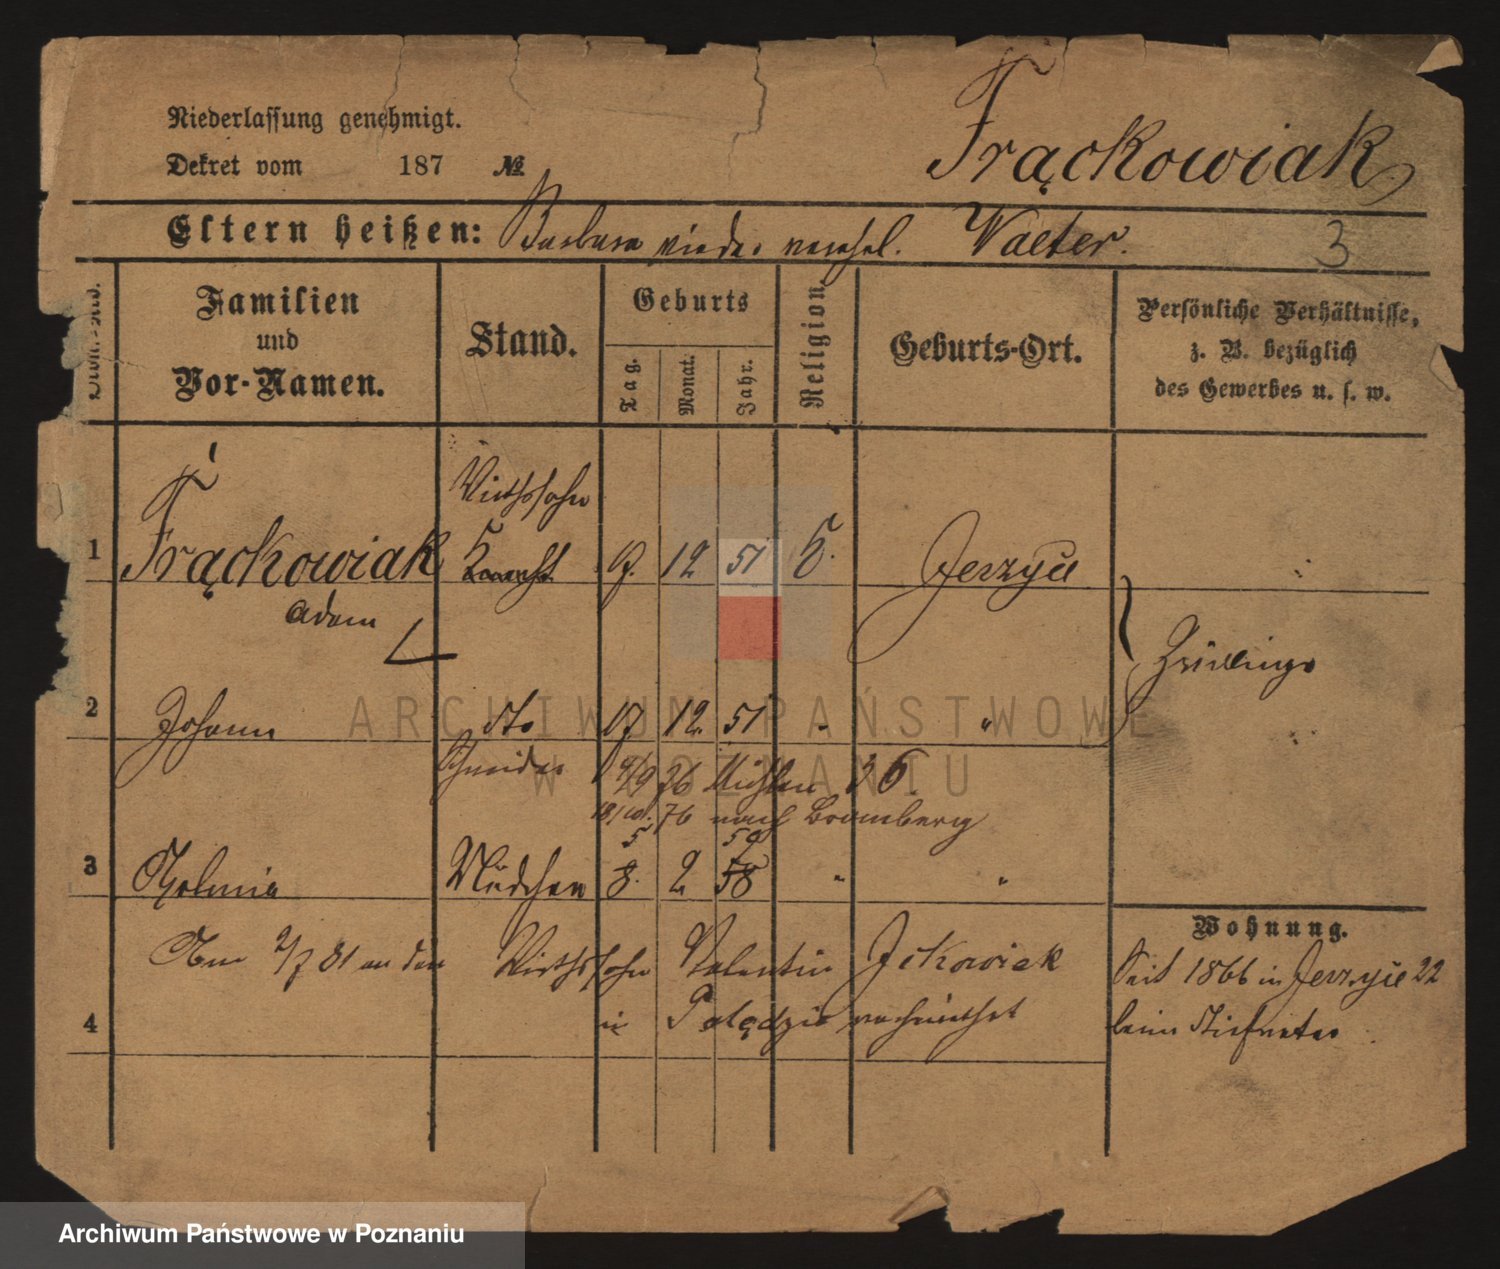 Niederlassung genehmigt.
Dekret vom 187 №
Frąckowiak
Eltern heißen: Barbara wieder verehel. Walter.
3
Familien
und
Vor-Namen.
Stand.
Geburts
Tag.
Monat.
Jahr.
Religion.
Geburts-Ort.
Persönliche Verhältnisse,
z. B. bezüglich
des Gewerbes u. s. w.
Wirthssohn
1 Frąckowiak Knecht 17. 12 51 k. Jerzyce
Adam
Zwillinge
2 Johann dto 17 12. 51 " "
Schneider 76 26
76 nach Bromberg
5 59
3 Mädchen 8. 2 58 " "
Wohnung.
Am 2/7 81 an den Wirthssohn Valentin Jckowiak
Seit 1866 in Jerzyce 22
4 in Palędzie verheirathet
beim Stiefvater
ARCHIWUM PAŃSTWOWE
W POZNANIU
Archiwum Państwowe w Poznaniu